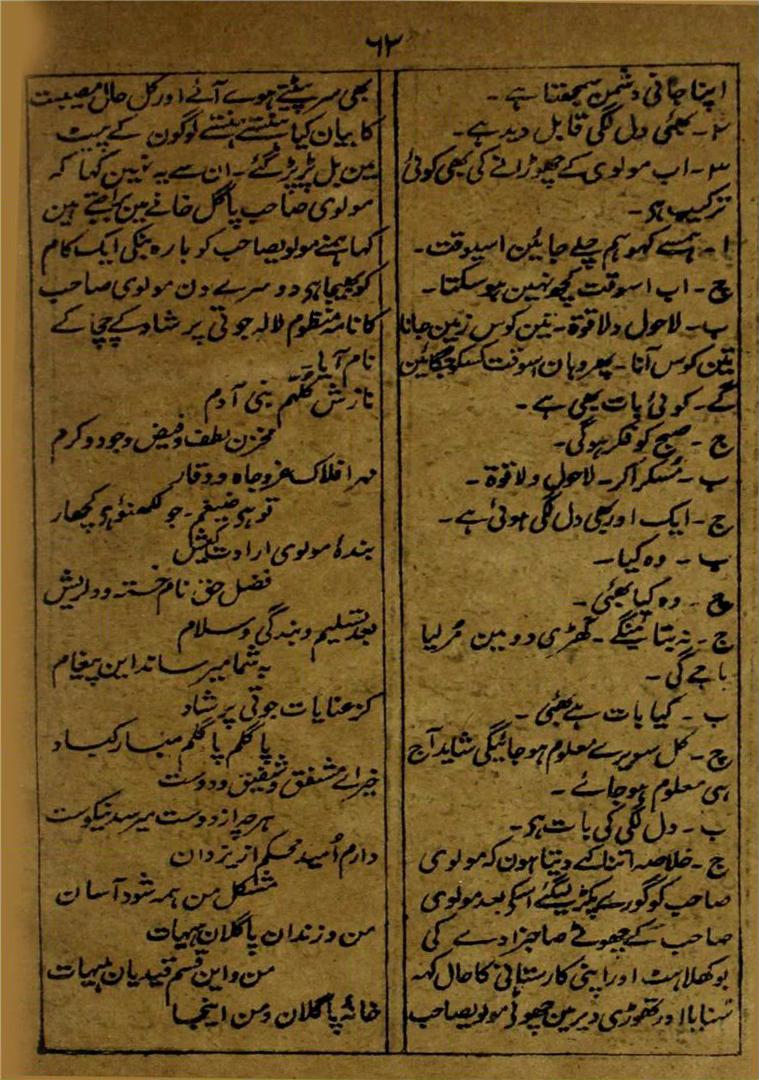 ۶۳
اپنا جانی دشمن سمجھتا ہے۔
۲۔ بھئی دل لگی قابل دید ہے۔
۳۔ اب مولوی کے چھوڑانے کی بھی کوئی
ترکیب ہو۔
ا۔ ہمسے کہو ہم چلے جائین اسیوقت۔
ج۔ اب اسوقت کچھ نہین ہو سکتا۔
ب۔ لاحول ولا قوۃ۔ تین کوس زمین جانا
تین کوس آنا۔ پھر وہان اسوقت کسکو جگائین
گے۔ کوئی بات بھی ہے۔
ج۔ صبح کو فکر ہوگی۔
ب۔ مُسکرا کر۔ لاحول ولا قوۃ۔
ج۔ ایک اور بھی دل لگی ہوئی ہے۔
ب۔ وہ کیا۔
ج۔ وہ کیا بھئی۔
ج۔ نہ بتائینگے۔ گھڑی دو مین مُرلیا
باجے گی۔
ب۔ کیا بات ہے بھئی۔
ج۔ کل سویرے معلوم ہو جائیگی شاید آج
ہی معلوم ہو جائے۔
ب۔ دل لگی کی بات ہو۔
ج۔ خلاصہ اتنا کہے دیتا ہون کہ مولوی
صاحب کو گورے پکڑ لیگئے اسکے بعد مولوی
صاحب کے چھوٹے صاحبزادے کی
بوکھلاہٹ اور اپنی کارستانی کا حال کہہ
سُنایا اور تھوڑی دیر مین چھوٹے مولویصاحب
بھی سر پیٹتے ہوے آئے اور کل حال مصیبت
کا بیان کیا ہنستے ہنستے لوگون کے پیٹ
مین بل پڑ پڑ گئے۔ ان سے یہ نہین کہا کہ
مولوی صاحب پاگل خانے مین بستے ہین
کہا ہمنے مولویصاحب کو بارہ بنکی ایک کام
کو بھیجا ہو دوسرے دن مولوی صاحب
کا نامہ منظوم لالہ جوتی پرشاد کے چچا کے
نام آیا۔
نازش کلہم بنی آدم
مخزن لطف و فیض و جود و کرم
مہر افلاک عز و جاہ و وقار
تو ہو ضیغم۔ جو لکھنؤ ہو کچھار
بندۂ مولوی ارادت کیش
فضل حق نام خستہ و دلریش
بعد تسلیم و بندگی و سلام
بہ شما میرساند این پیغام
کز عنایات جوتی پرشاد
پاگلم پاگلم مبارکباد
خیر اے مشفق و شفیق و دوست
ہر چہ از دوست میرسد نیکوست
دارم اُمید محکم از یزدان
مشکل من ہمہ شود آسان
من و زندان پاگلان ہیہات
من و این قسم قیدیان ہیہات
خانۂ پاگلان و من اینجا